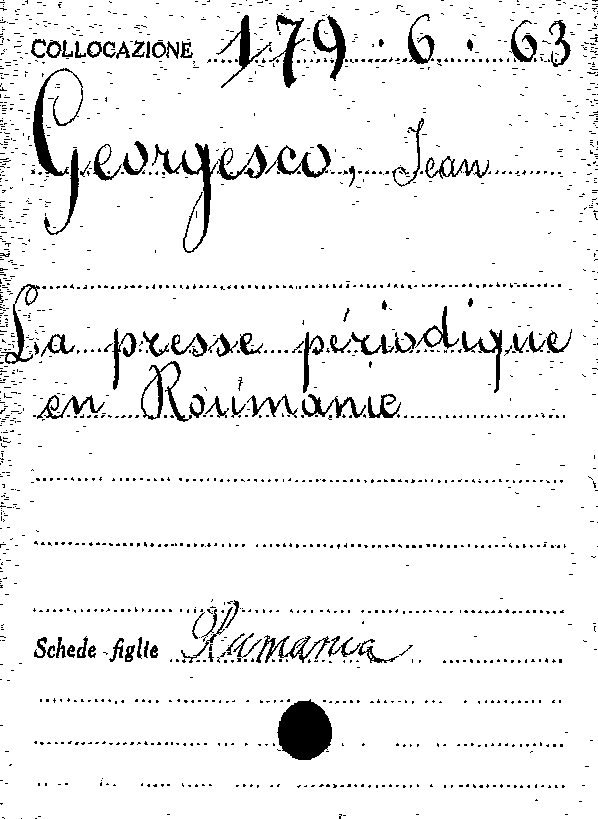 COLLOCAZIONE 179 · 6 · 63
Georgesco, Jean
La presse périodique
en Roumanie
Schede figlie Rumania